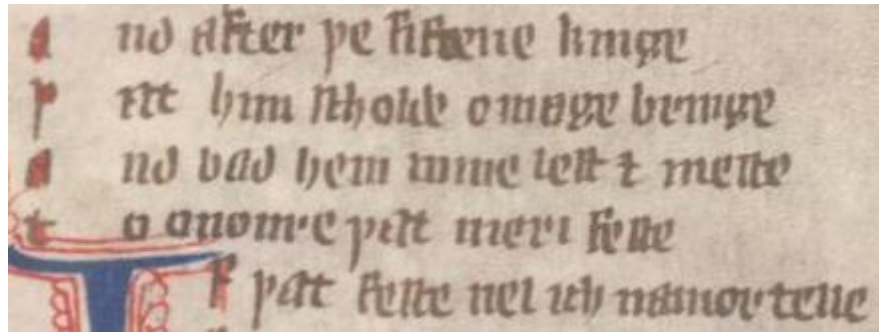 a nd after þe fiftene kinge
þ at him scholde omage bringe
a nd bad hem come lest ⁊ meste
t o anoure þat meri feste
f þat feste nel ich namor telle